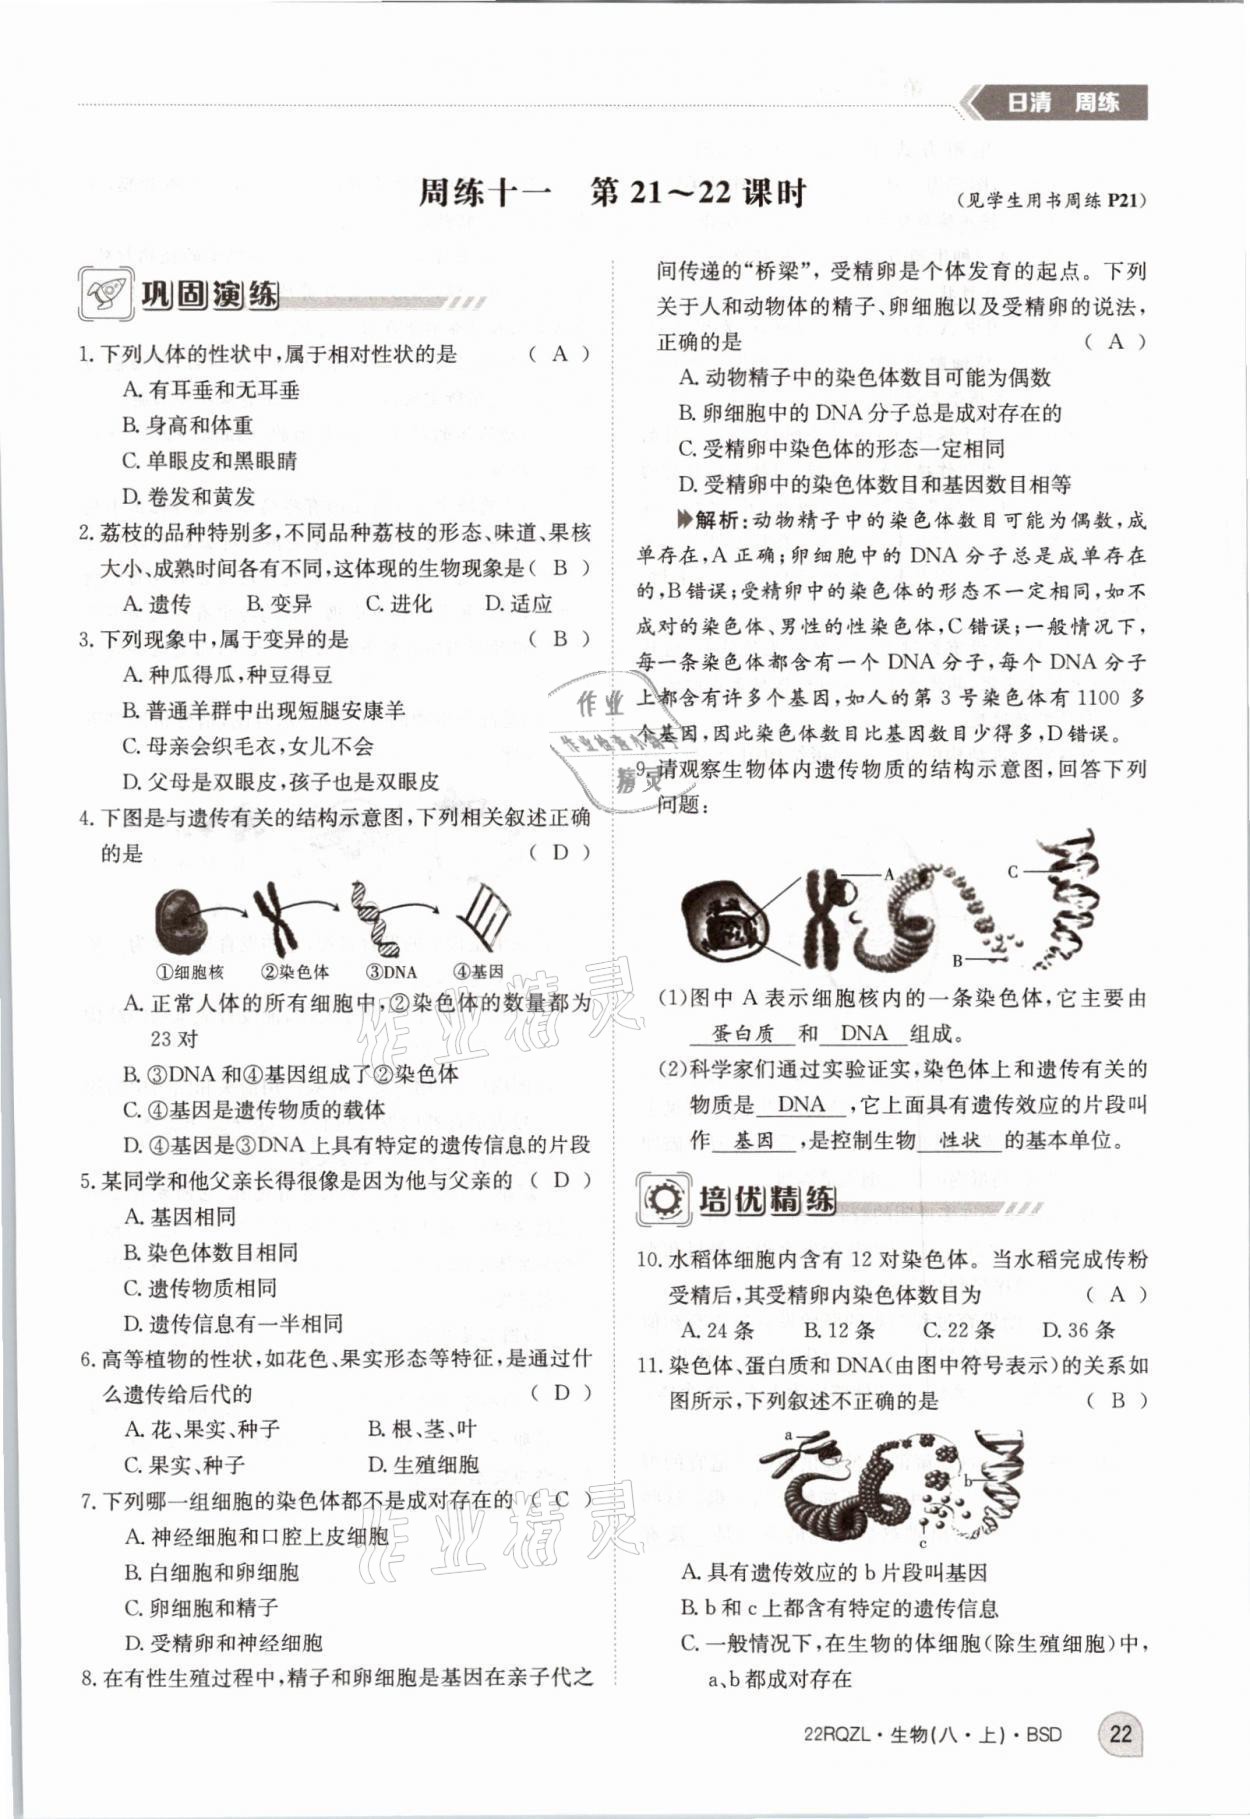 日清 周练
周练十一 第21～22课时
(见学生用书周练P21)
巩固演练
1. 下列人体的性状中,属于相对性状的是 ( A )
A. 有耳垂和无耳垂
B. 身高和体重
C. 单眼皮和黑眼睛
D. 卷发和黄发
2. 荔枝的品种特别多,不同品种荔枝的形态、味道、果核
大小、成熟时间各有不同,这体现的生物现象是( B )
A. 遗传 B. 变异 C. 进化 D. 适应
3. 下列现象中,属于变异的是 ( B )
A. 种瓜得瓜,种豆得豆
B. 普通羊群中出现短腿安康羊
C. 母亲会织毛衣,女儿不会
D. 父母是双眼皮,孩子也是双眼皮
4. 下图是与遗传有关的结构示意图,下列相关叙述正确
的是 ( D )
①细胞核 ②染色体 ③DNA ④基因
A. 正常人体的所有细胞中,②染色体的数量都为
23对
B. ③DNA和④基因组成了②染色体
C. ④基因是遗传物质的载体
D. ④基因是③DNA上具有特定的遗传信息的片段
5. 某同学和他父亲长得很像是因为他与父亲的 ( D )
A. 基因相同
B. 染色体数目相同
C. 遗传物质相同
D. 遗传信息有一半相同
6. 高等植物的性状,如花色、果实形态等特征,是通过什
么遗传给后代的 ( D )
A. 花、果实、种子 B. 根、茎、叶
C. 果实、种子 D. 生殖细胞
7. 下列哪一组细胞的染色体都不是成对存在的 ( C )
A. 神经细胞和口腔上皮细胞
B. 白细胞和卵细胞
C. 卵细胞和精子
D. 受精卵和神经细胞
8. 在有性生殖过程中,精子和卵细胞是基因在亲子代之
间传递的“桥梁”,受精卵是个体发育的起点。下列
关于人和动物体的精子、卵细胞以及受精卵的说法,
正确的是 ( A )
A. 动物精子中的染色体数目可能为偶数
B. 卵细胞中的DNA分子总是成对存在的
C. 受精卵中染色体的形态一定相同
D. 受精卵中的染色体数目和基因数目相等
解析:动物精子中的染色体数目可能为偶数,成
单存在,A正确;卵细胞中的DNA分子总是成单存在
的,B错误;受精卵中的染色体的形态不一定相同,如不
成对的染色体、男性的性染色体,C错误;一般情况下,
每一条染色体都含有一个DNA分子,每个DNA分子
上都含有许多个基因,如人的第3号染色体有1100多
个基因,因此染色体数目比基因数目少得多,D错误。
9. 请观察生物体内遗传物质的结构示意图,回答下列
问题:
A
C
B
(1)图中A表示细胞核内的一条染色体,它主要由
蛋白质 和 DNA 组成。
(2)科学家们通过实验证实,染色体上和遗传有关的
物质是 DNA ,它上面具有遗传效应的片段叫
作 基因 ,是控制生物 性状 的基本单位。
培优精练
10. 水稻体细胞内含有12对染色体。当水稻完成传粉
受精后,其受精卵内染色体数目为 ( A )
A. 24条 B. 12条 C. 22条 D. 36条
11. 染色体、蛋白质和DNA(由图中符号表示)的关系如
图所示,下列叙述不正确的是 ( B )
a
b
c
A. 具有遗传效应的b片段叫基因
B. b和c上都含有特定的遗传信息
C. 一般情况下,在生物的体细胞(除生殖细胞)中,
a、b都成对存在
22RQZL·生物(八·上)·BSD 22
作业精灵
作业精灵
作业
精灵